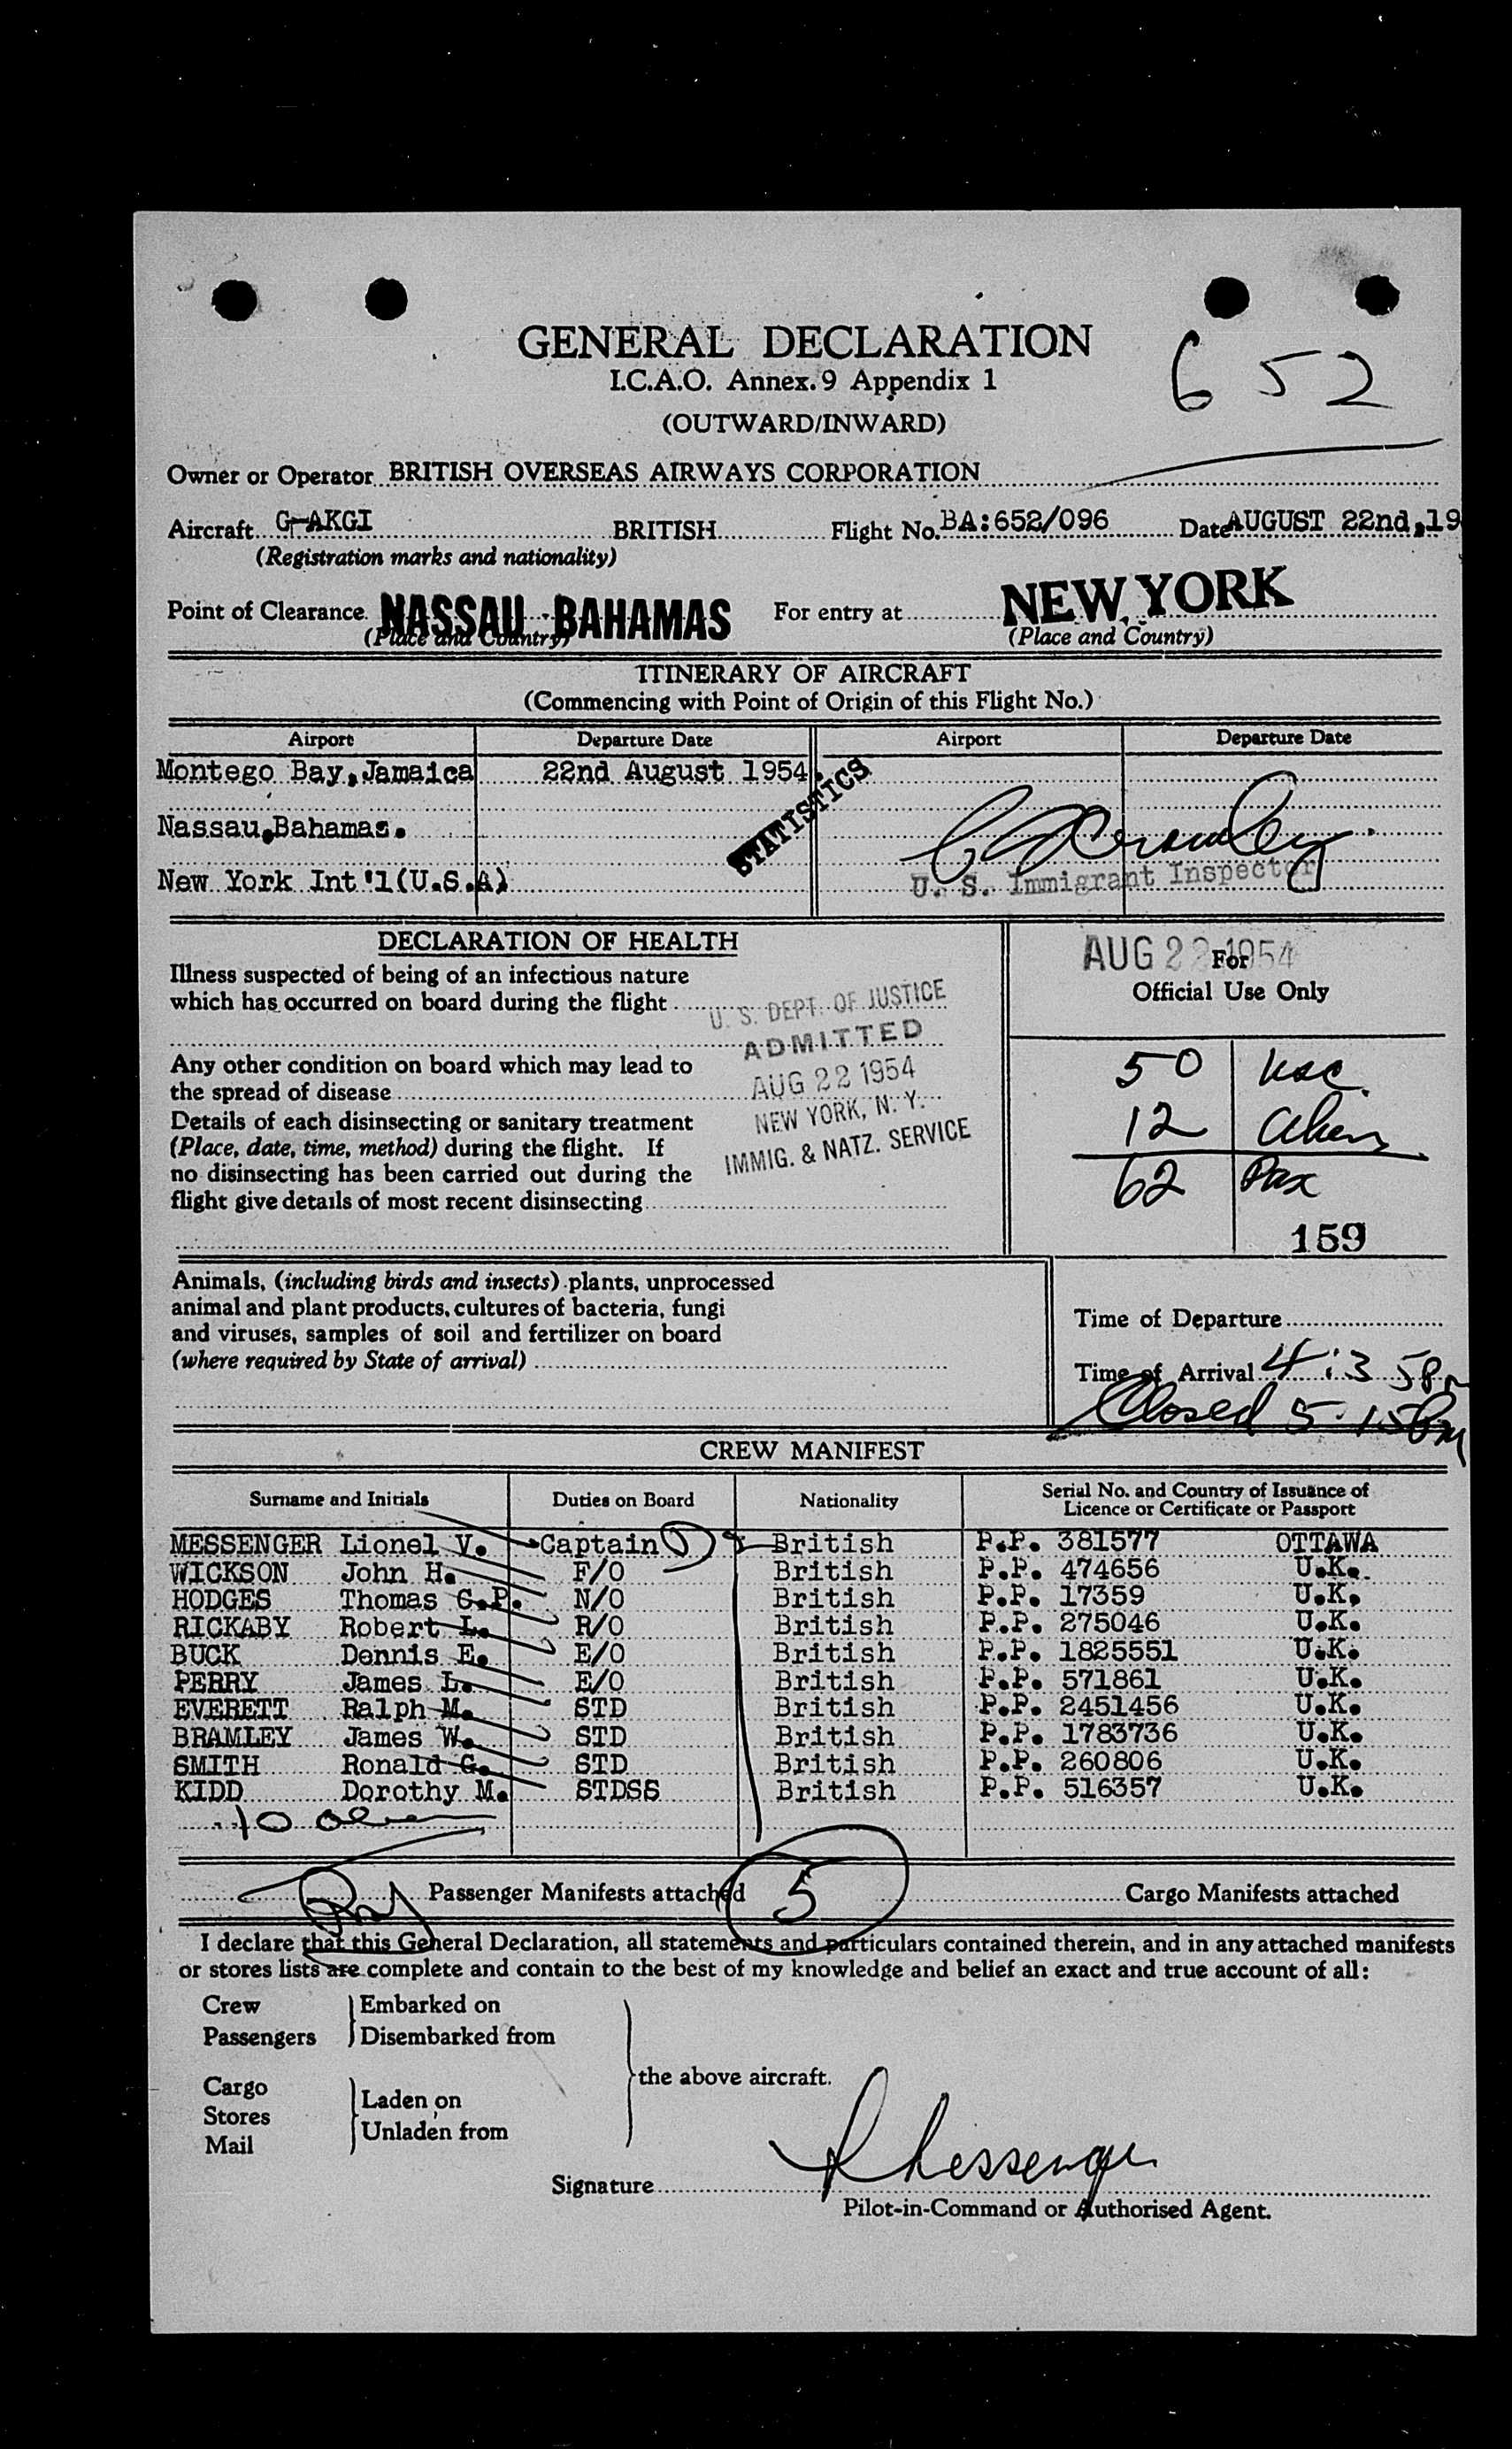 GENERAL DECLARATION
652
I.C.A.O. Annex. 9 Appendix 1
(OUTWARD/INWARD)
Owner or Operator BRITISH OVERSEAS AIRWAYS CORPORATION
Aircraft G-AKGI BRITISH Flight No. BA:652/096 Date AUGUST 22nd,19
(Registration marks and nationality)
Point of Clearance NASSAU - BAHAMAS For entry at NEW YORK
(Place and Country) (Place and Country)
ITINERARY OF AIRCRAFT
(Commencing with Point of Origin of this Flight No.)
Airport Departure Date Airport Departure Date
Montego Bay,Jamaica 22nd August 1954.
STATISTICS
Nassau,Bahamas.
New York Int'l(U.S.A) U. S. Immigrant Inspector
DECLARATION OF HEALTH
AUG 22 1954 For
Official Use Only
Illness suspected of being of an infectious nature
which has occurred on board during the flight
U. S. DEPT. OF JUSTICE
ADMITTED
AUG 22 1954
NEW YORK, N. Y.
IMMIG. & NATZ. SERVICE
Any other condition on board which may lead to
the spread of disease
Details of each disinsecting or sanitary treatment
(Place, date, time, method) during the flight. If
no disinsecting has been carried out during the
flight give details of most recent disinsecting
50 usc
12 alien
62 Pax
159
Animals, (including birds and insects) plants, unprocessed
animal and plant products, cultures of bacteria, fungi
and viruses, samples of soil and fertilizer on board
(where required by State of arrival)
Time of Departure
Time of Arrival 4:35pm
Closed 5:15Pm
CREW MANIFEST
Surname and Initials Duties on Board Nationality Serial No. and Country of Issuance of Licence or Certificate or Passport
MESSENGER Lionel V. Captain British P.P. 381577 OTTAWA
WICKSON John H. F/O British P.P. 474656 U.K.
HODGES Thomas G.P. N/O British P.P. 17359 U.K.
RICKABY Robert L. R/O British P.P. 275046 U.K.
BUCK Dennis E. E/O British P.P. 1825551 U.K.
PERRY James L. E/O British P.P. 571861 U.K.
EVERETT Ralph M. STD British P.P. 2451456 U.K.
BRAMLEY James W. STD British P.P. 1783736 U.K.
SMITH Ronald G. STD British P.P. 260806 U.K.
KIDD Dorothy M. STDSS British P.P. 516357 U.K.
10
Passenger Manifests attached 5 Cargo Manifests attached
I declare that this General Declaration, all statements and particulars contained therein, and in any attached manifests
or stores lists are complete and contain to the best of my knowledge and belief an exact and true account of all:
Crew Embarked on
Passengers Disembarked from
the above aircraft.
Cargo Laden on
Stores
Unladen from
Mail
Signature Messenger
Pilot-in-Command or Authorised Agent.